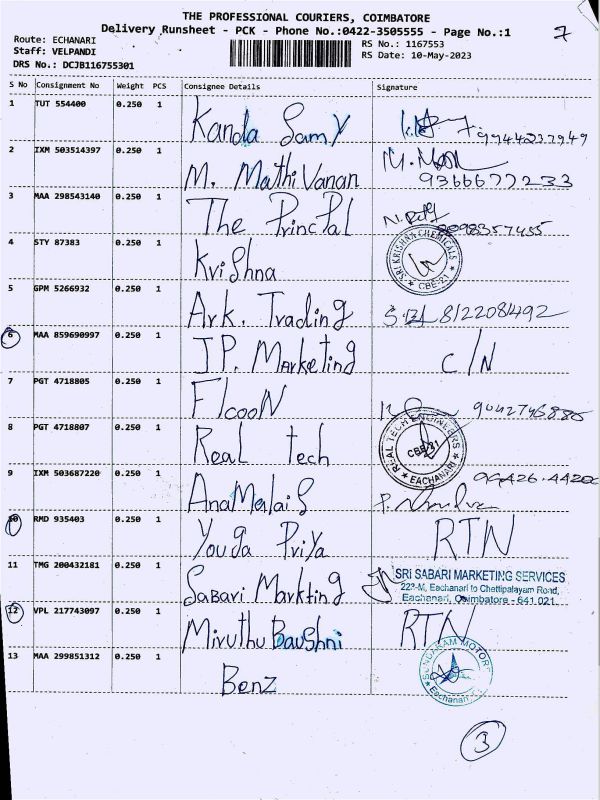 THE PROFESSIONAL COURIERS, COIMBATORE
Delivery Runsheet - PCK - Phone No.:0422-3505555 - Page No.:1
7
Route: ECHANARI
Staff: VELPANDI
DRS No.: DCJB116755301
RS No.: 1167553
RS Date: 10-May-2023
S No Consignment No Weight PCS Consignee Details Signature
1 TUT 554400 0.250 1 Kanda Samy 9944237949
2 IXM 503514397 0.250 1 M. Mathi Vanan 9366677233
3 MAA 298543140 0.250 1 The PrincPal 8098357455
4 STY 87383 0.250 1 Krishna SRI KRISHNA CHEMICALS CBE-21
5 GPM 5266932 0.250 1 Ark. Trading 8122081492
6 MAA 859690997 0.250 1 JP. Marketing C/N
7 PGT 4718805 0.250 1 FlcooN
8 PGT 4718807 0.250 1 Real tech REAL TECH ENGINEERS CBE-21 EACHANARI
9 IXM 503687220 0.250 1 AnaMalai S
10 RMD 935403 0.250 1 Youga Priya RTN
11 TMG 200432181 0.250 1 Sabari Markting SRI SABARI MARKETING SERVICES
22?-M, Eachanari to Chettipalayam Road,
Eachanari, Coimbatore - 641 021.
12 VPL 217743097 0.250 1 Miruthu Baushni RTN
13 MAA 299851312 0.250 1 Benz SUNDARAM MOTORS Eachanari
3